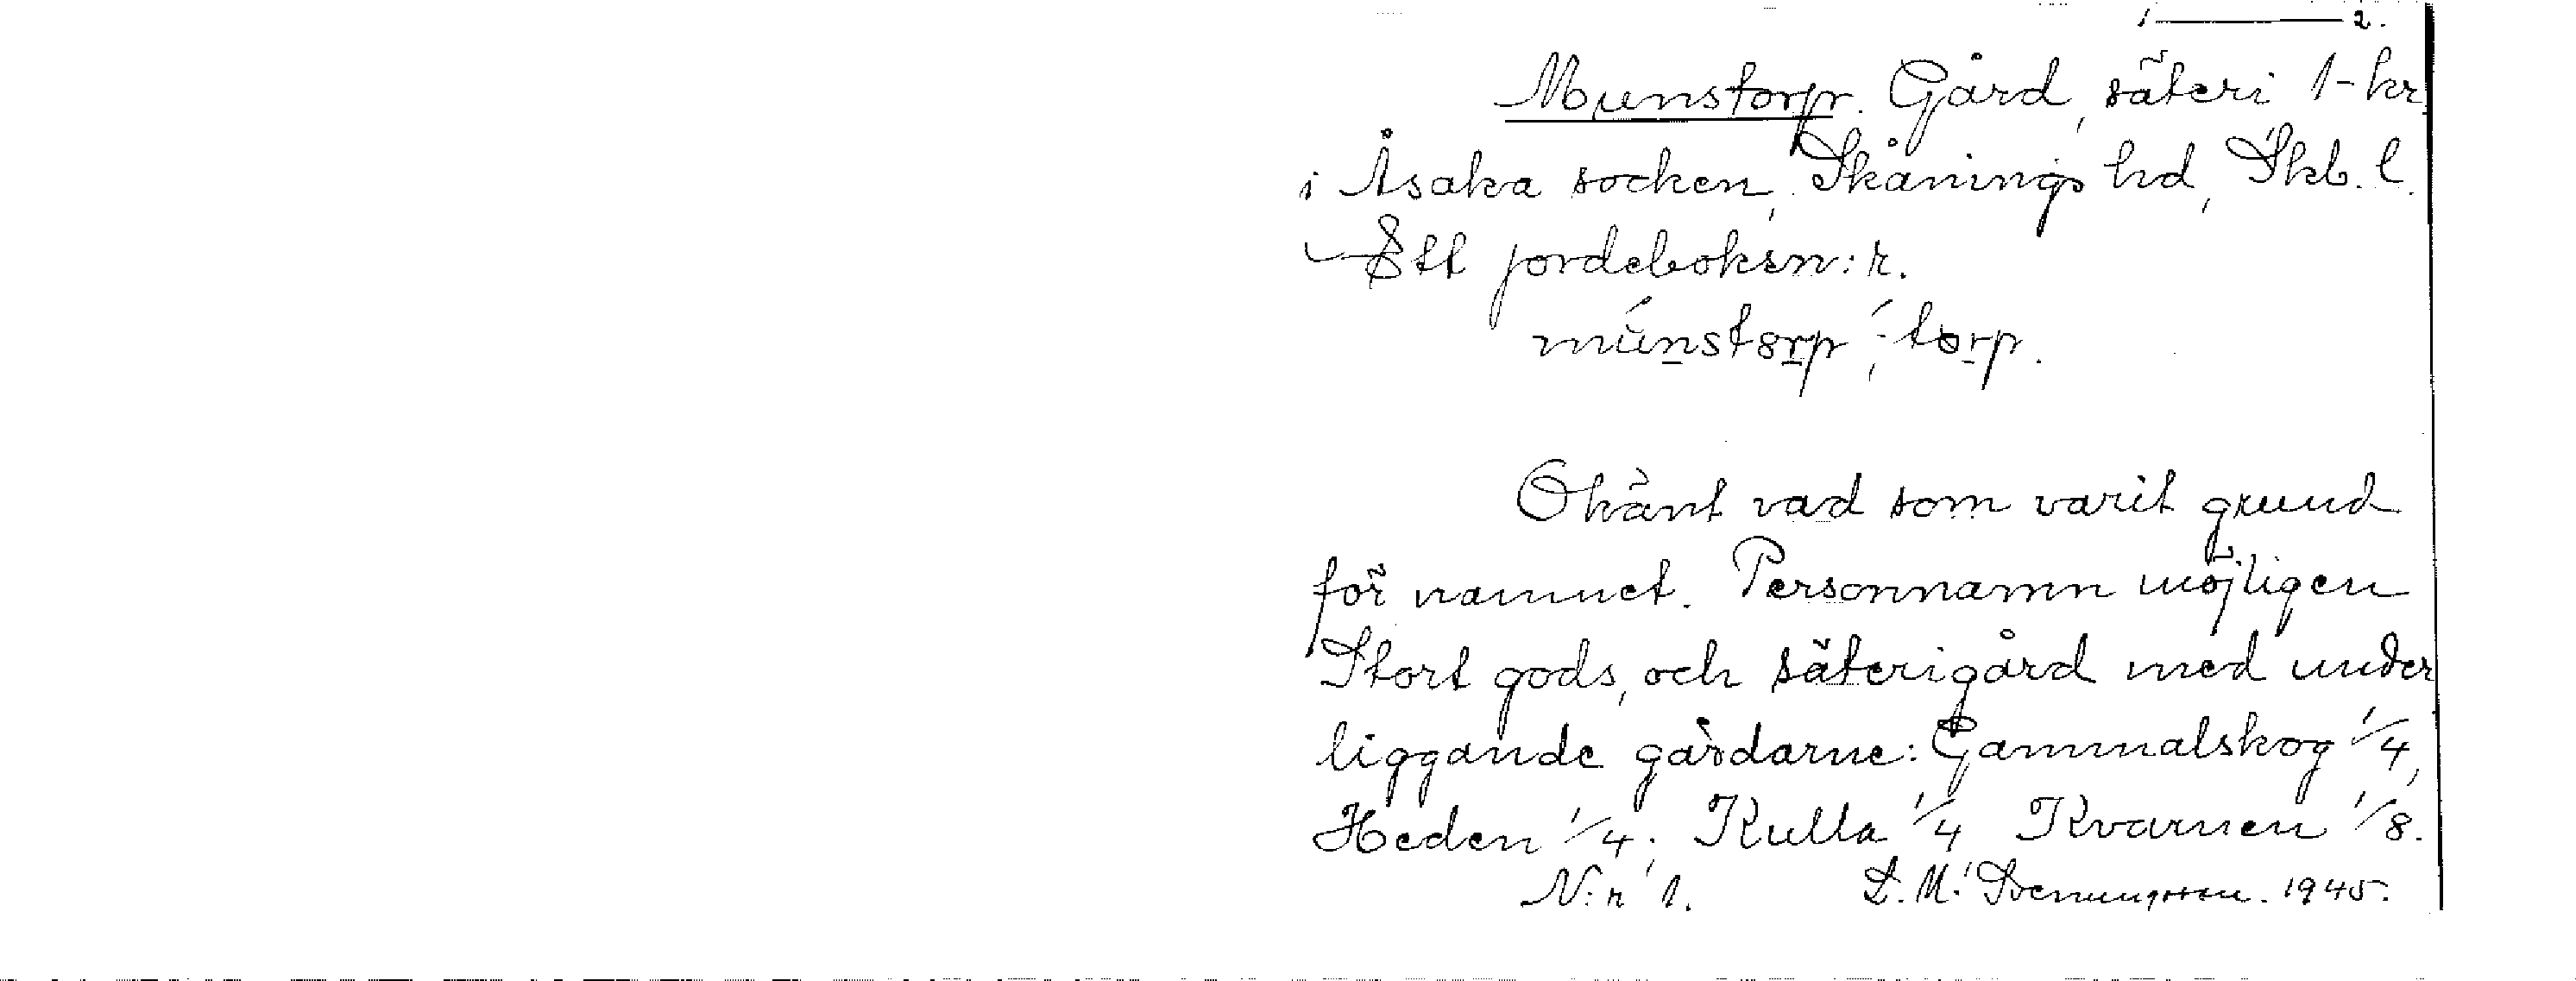 1 — 2.
Munstorp. Gård, säteri 1-kr
i Åsaka socken, Skånings hd, Skb. l.
Ett jordeboksn:r.
múnstorp, -́torp.
Okänt vad som varit grund
för namnet. Personnamn möjligen
Stort gods, och säterigård med under
liggande gårdarne: Gammalskog 1/4,
Heden 1/4; Kulla 1/4 Kvarnen 1/8.
N:r 1. S. M. Svenungsson. 1945.